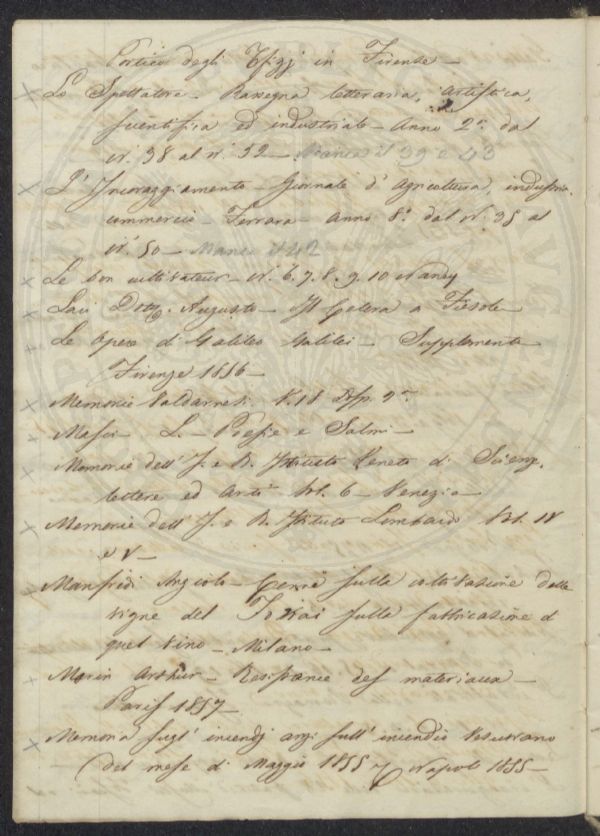 Portico degli Ufizj in Firenze —
Lo Spettatore – Rassegna letteraria, artistica,
scientifica ed industriale – Anno 2º. dal
N.º 38 al N.º 52 – Manca il 39 e 43
L'Incoraggiamento – Giornale d'Agricoltura, industria
commercio – Ferrara – Anno 8º. dal N.º 35 al
N.º 50 – Manca il 42
Le bon cultivateur – N.º 6. 7. 8. 9. 10 Nancy
Laei Dott. Augusto – Il Colera a Fiesole
Le Opere di Galileo Galilei – Supplemento
Firenze 1856 –
Memorie Valdarnesi. 9ª
L. – Poesie e Salmi –
Memorie dell'I. e R. Istituto Veneto di Scienze,
lettere ed arti Vol. 6 – Venezia –
Memorie dell'I. e R. Istituto Lombardo Vol. IV
e V –
Manfredi Angiolo – Cenni sulla coltivazione delle
vigne del Tokai sulla fabbricazione di
quel vino – Milano –
Morin Arthur – Resistance des materiaux –
Paris 1857 –
Memoria sugl'incendj sull'incendio Vesuviano
del mese di Maggio 1855 Napoli 1855 –